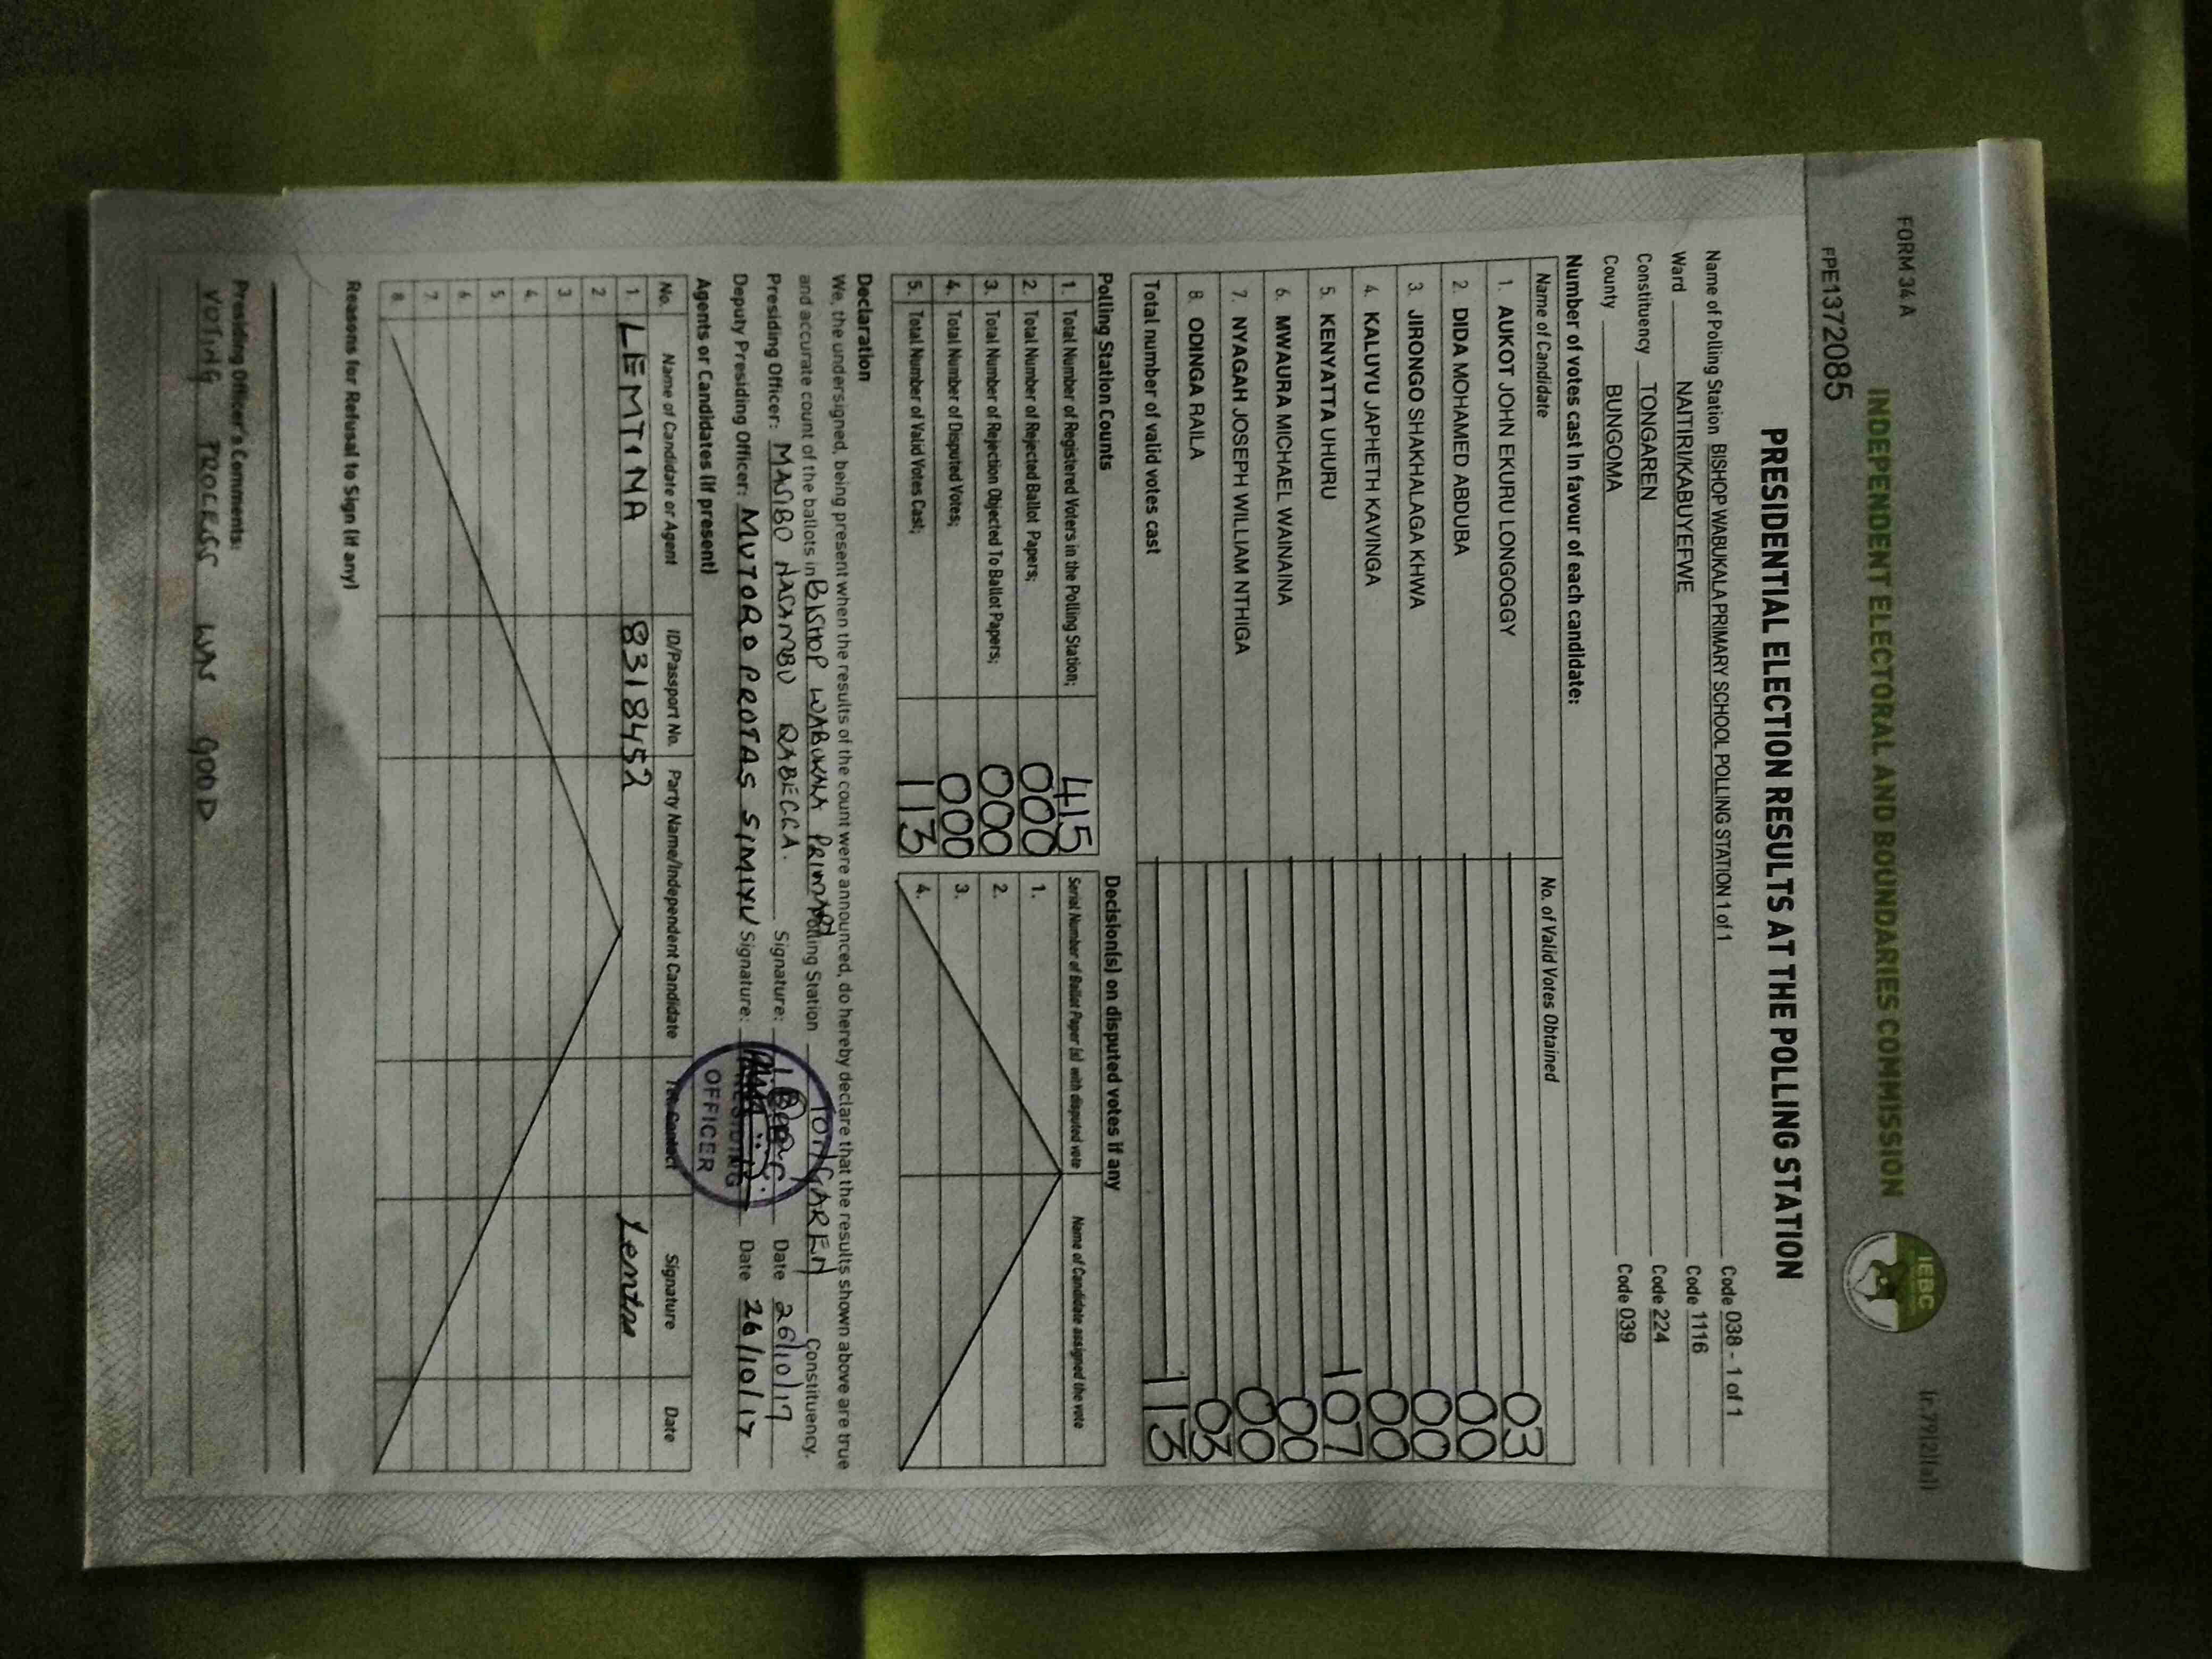 FORM 34 A
(r.79(2)(a))
INDEPENDENT ELECTORAL AND BOUNDARIES COMMISSION
IEBC
FPE1372085
PRESIDENTIAL ELECTION RESULTS AT THE POLLING STATION
Name of Polling Station BISHOP WABUKALA PRIMARY SCHOOL POLLING STATION 1 of 1 Code 038 - 1 of 1
Ward NAITIRI/KABUYEFWE Code 1116
Constituency TONGAREN Code 224
County BUNGOMA Code 039
Number of votes cast in favour of each candidate:
Name of Candidate No. of Valid Votes Obtained
1. AUKOT JOHN EKURU LONGOGGY 03
2. DIDA MOHAMED ABDUBA 00
3. JIRONGO SHAKHALAGA KHWA 00
4. KALUYU JAPHETH KAVINGA 00
5. KENYATTA UHURU 107
6. MWAURA MICHAEL WAINAINA 00
7. NYAGAH JOSEPH WILLIAM NTHIGA 00
8. ODINGA RAILA 03
Total number of valid votes cast 113
Polling Station Counts
1. Total Number of Registered Voters in the Polling Station; 415
2. Total Number of Rejected Ballot Papers; 000
3. Total Number of Rejection Objected To Ballot Papers; 000
4. Total Number of Disputed Votes; 000
5. Total Number of Valid Votes Cast; 113
Decision(s) on disputed votes if any
Serial Number of Ballot Paper (s) with disputed vote Name of Candidate assigned the vote
1.
2.
3.
4.
Declaration
We, the undersigned, being present when the results of the count were announced, do hereby declare that the results shown above are true
and accurate count of the ballots in BISHOP WABUKALA PRIMARY Polling Station TONGAREN Constituency.
Presiding Officer: MASIBO NAKAMBU Signature: Date 26/10/17
Deputy Presiding Officer: MUTORO PROTAS SIMIYU Signature: Date 26/10/17
PRESIDING
OFFICER
Agents or Candidates (if present)
No. Name of Candidate or Agent ID/Passport No. Party Name/Independent Candidate Tel. Contact Signature Date
1. LEMTINA 8318452
2
3
4
5
6
7
8
Reasons for Refusal to Sign (if any)
Presiding Officer's Comments:
VOTING PROCESS WAS GOOD